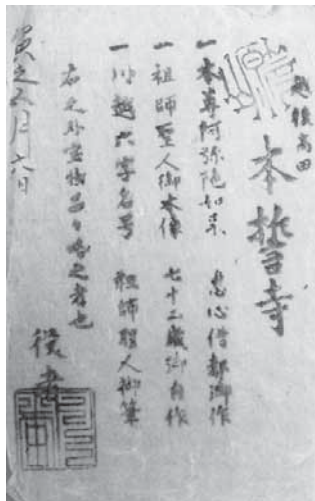 越後高田
本誓寺
一本尊阿弥陀如来 恵心僧都御作
一祖師聖人御木像 七十三歳御自作
一川越六字名号 祖師聖人御筆
右之外霊宝略之者也
寅之五月六日
役者